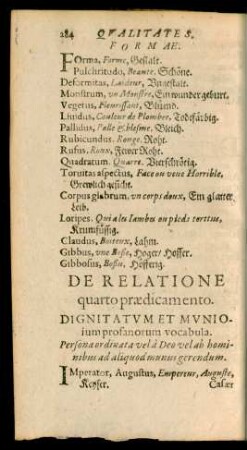 284 QVALITATES.
FORMAE.
FOrma, Forme, Gestalt.
Pulchritudo, Beaute, Schöne.
Deformitas, Laideur, Vngestalt.
Monstrum, vn Monstre, Ein wundergeburt.
Vegetus, Fleurissant, Blüend.
Liuidus, Couleur de Plombee, Todtfärbig.
Pallidus, Palle & blesme, Bleich.
Rubicundus. Rouge. Roht.
Rufus. Roux, Fewer Roht.
Quadratum. Quarre. Vierschrötig.
Toruitas aspectus, Face ou veue Horrible,
Grewlich gesicht.
Corpus glabrum, vn corps doux, Ein glatter
Leib.
Loripes. Qui a les iambes ou pieds tortus,
Krumfüssig.
Claudus, Boiteux, Lahm.
Gibbus, vne Bosse, Hoger/ Hoffer.
Gibbosus, Bossu, Höfferig.
DE RELATIONE
quarto prædicamento.
DIGNITATVM ET MVNIO-
ium profanorum vocabula.
Persona ordinata vel à Deo vel ab homi-
nibus ad aliquod munus gerendum.
IMperator, Augustus, Empereur, Auguste,
Keyser. Cæsar